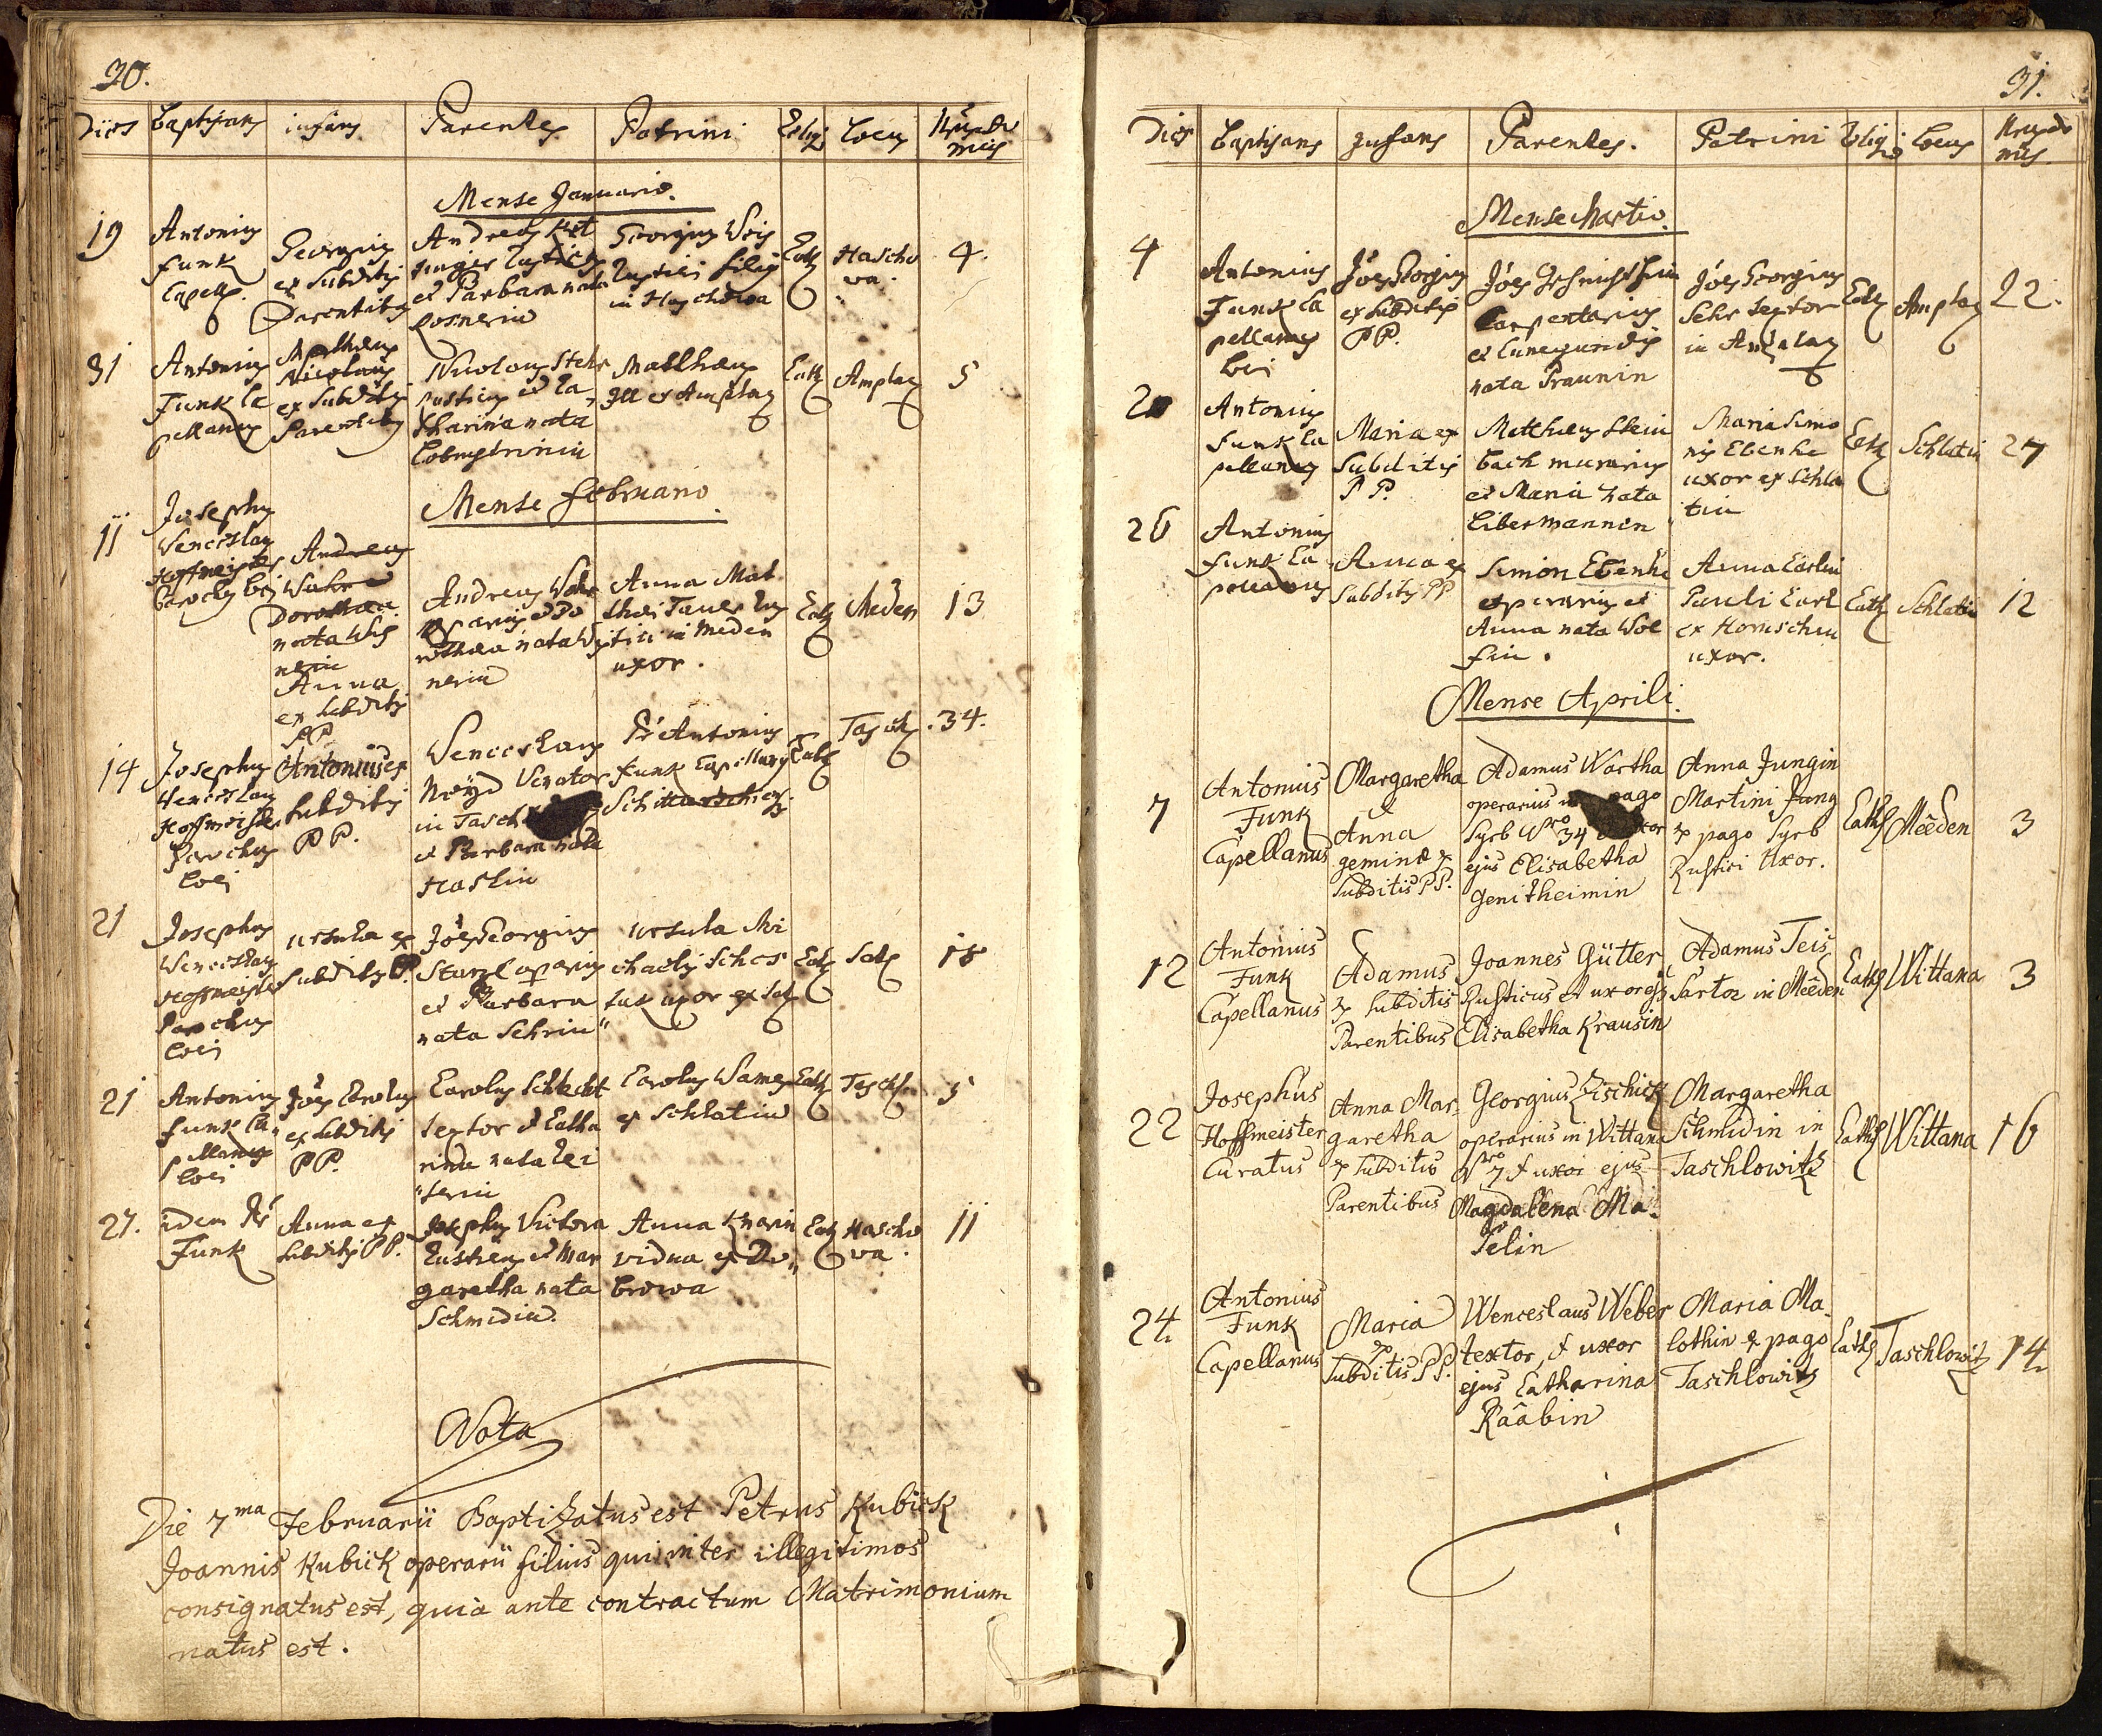 30.
Dies Baptisans infans Parentes Patrini Relig Locus Nrus do mus
Mense Januario.
19
Antonius
Funk
Capell.
Georgius
ex Subditis
Parentibus
Andreas
Rustic
et Barbara nata
Georgius Weis
Rustici filius
in Haschowa
Cath
Hascho
wa
4.
31
Antonius
Funk Ca
pellanus
Mathaeus
Nicolaus
ex Subditis
Parentibus
Nicolaus Stehr
rusticus et Ca,,
tharina nata
Mathaeus
Ill ex Amplaz
Cath
Amplaz
5
Mense Februario
11
Josephus
Wenceslaus
Hoffmeister
Parochus loci
Andreas
Dorothea
nata Wis
nerin
Anna
ex Subditis
PP
Andreas
operarius et Do
rothea nata Wis
nerin
Anna Mat
thaei Tauer Rus
tici in Meden
uxor.
Cath
Meden
13
14
Josephus
Wenceslaus
Hoffmeister
Parochus
loci
Antonius ex
Subditis
PP.
Wenceslaus
Venator
in Tasch
et Barbara nata
Haslin
Pr Antonius
Funk Capellanus
Cath
.34.
21
Josephus
Wenceslaus
Hoffmeister
Parochus
loci
Ursula ex
Subditis P.
Joes Georgius
Starzl operarius
et Barbara
nata Schrin"
Ursula Mi
chaelis
uxor ex
Cath
18
21
Antonius
Funk Ca"
pellanus
loci
Joes Carolus
ex Subditis
PP.
Carolus Schlecht
textor et Catha
rina nata Lei
"serin
Carolus
ex Schlatin
Cath
5
27.
idem Pr
Funk
Anna ex
Subditis PP.
Josephus Victora
Rusticus et Mar
garetha nata
Schmidin.
Anna Knarin
vidua ex Do,,
browa
Cath
Hascho
wa.
11
Nota
Die 7ma Februarii Baptizatus est Petrus Kubiik
Joannis Kubiik operarii filius qui inter illegitimos
consignatus est, quia ante contractum Matrimonium
natus est.
31.
Dies Baptisans Infans Parentes. Patrini Religio Locus Nrus do mus.
Mense Martio.
4
Antonius
Funk Ca
pellanus
loci
Joes Georgius
ex Subditis
PP.
Joes
Carpentarius
et Cunegundis
nata Praunin
Joes Georgius
Sehr textor
in Amplaz
Cath
Amplaz
22.
20
Antonius
Funk Ca
pellanus
Maria ex
Subditis
PP.
Matthaeus Stein
bach murarius
et Maria nata
Libermannin
Maria Simo
nis Ebenhe
uxor ex Schla
tin
Cath
Schlatin
27
26
Antonius
Funk Ca
pellanus
Anna ex
Subditis PP
Simon Ebenhe
operarius et
Anna nata Wol
fin.
Anna Carlin
Pauli Carl
ex Hornschin
uxor.
Cath
Schlatin
12
Mense Aprili.
7
Antonius
Funk
Capellanus
Margaretha
&
Anna
geminae ex
Subditis PP.
Adamus Wartha
operarius in pago
Syrb Nro 34 uxor
ejus Elisabetha
Genitheimin
Anna Jungin
Martini Jung
ex pago Syrb
Rustici Uxor.
Cath
Méeden
3
12
Antonius
Funk
Capellanus
Adamus
ex Subditis
Parentibus
Joannes Gütter
Rusticus et uxor ejus
Elisabetha Krausin
Adamus Teis
Sartor in Méeden
Cath
Wittana
3
22
Josephus
Hoffmeister
Curatus
Anna Mar
garetha
ex Subditis
Parentibus
Georgius Zischick
operarius in Wittana
Nro 7 & uxor ejus
Magdalena Ma
selin
Margaretha
Schmidin in
Taschlowitz
Cath
Wittana
16
24
Antonius
Funk
Capellanus
Maria
ex
Subditis PP.
Wenceslaus Weber
textor, & uxor
ejus Catharina
Raabin
Maria Ma
lothin ex pago
Taschlowitz
Cath
Taschlowitz
14